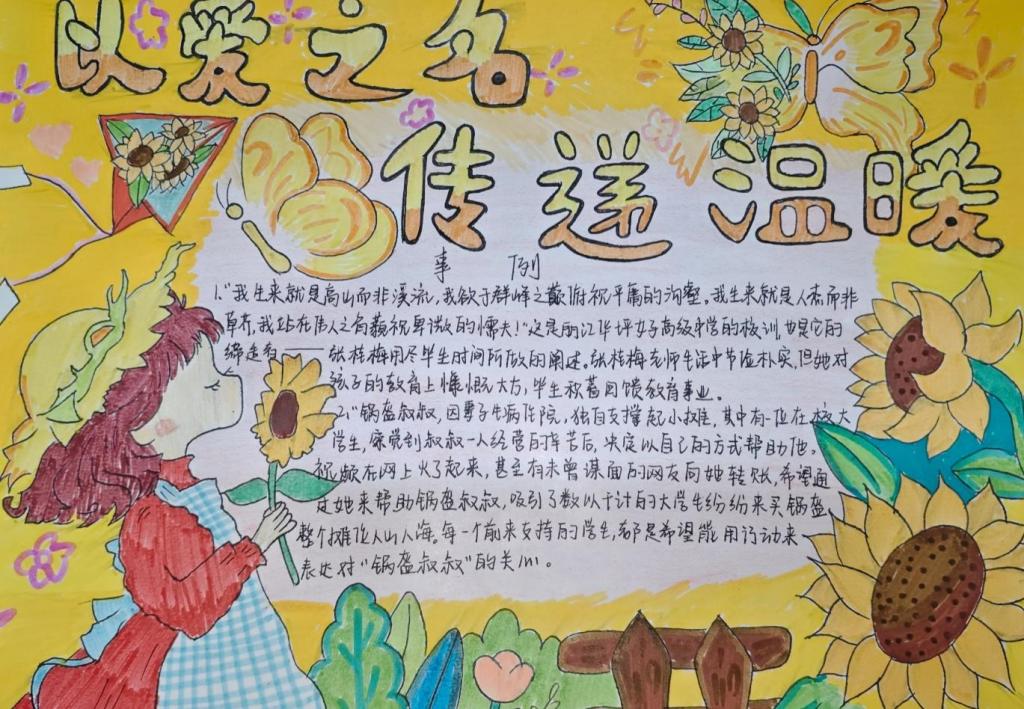 以爱之名
传递温暖
事 例
1."我生来就是高山而非溪流,我欲于群峰之巅俯视平庸的沟壑。我生来就是人杰而非
草芥,我站在伟人之肩藐视卑微的懦夫!"这是丽江华坪女子高级中学的校训,也是它的
缔造者——张桂梅用尽毕生时间所做的阐述。张桂梅老师生活中节俭朴实,但她对
孩子的教育上慷慨大方,毕生积蓄回馈教育事业。
2."锅盔叔叔,因妻子生病住院,独自支撑起小摊,其中有一位在校大
学生,察觉到叔叔一人经营的辛苦后,决定以自己的方式帮助他。
视频在网上火了起来,甚至有未曾谋面的网友向她转账,希望通
过她来帮助锅盔叔叔,吸引了数以千计的大学生纷纷来买锅盔,
整个摊位人山人海,每一个前来支持的学生,都是希望能用行动来
表达对"锅盔叔叔"的关心。